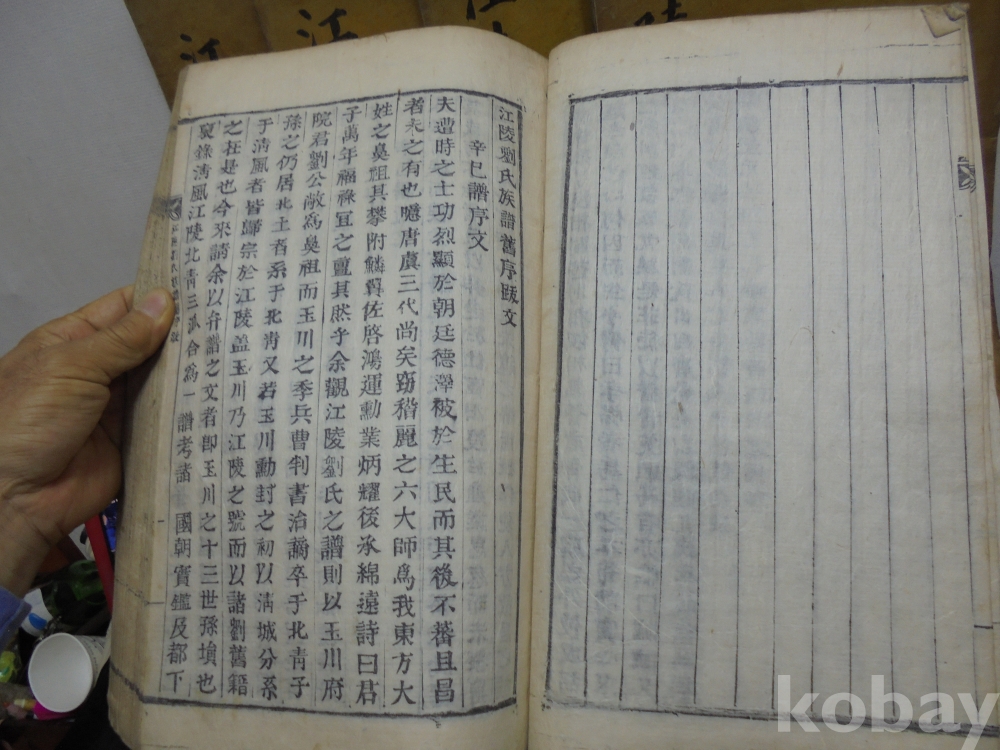 江陵劉氏族譜舊序跋文
辛巳譜序文
夫遭時之士功烈顯於朝廷德澤被於生民而其後不蕃且昌
者未之有也噫唐虞三代尚矣窃稽麗之六大師爲我東方大
姓之鼻祖其攀附鱗翼佐啓鴻運勳業炳耀後承綿遠詩曰君
子萬年福祿宜之亶其然乎余觀江陵劉氏之譜則以玉川府
院君劉公敞爲鼻祖而玉川之季兵曹判書治謫卒于北靑子
孫之仍居北土者系于北靑又若玉川勳封之初以淸城分系
于淸風者皆歸宗於江陵盖玉川乃江陵之號而以諸劉舊籍
之在是也今來請余以弁譜之文者卽玉川之十三世孫塤也
裒錄淸風江陵北靑三派合爲一譜考諸 國朝寶鑑及都下
江
江
kobay